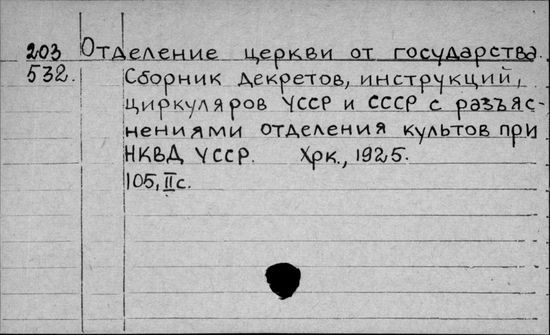 203 Отделение церкви от государства.
532. Сборник декретов, инструкций,
циркуляров УССР и СССР с разъяс-
нениями отделения культов при
НКВД УССР. Хрк., 1925.
105, II с.